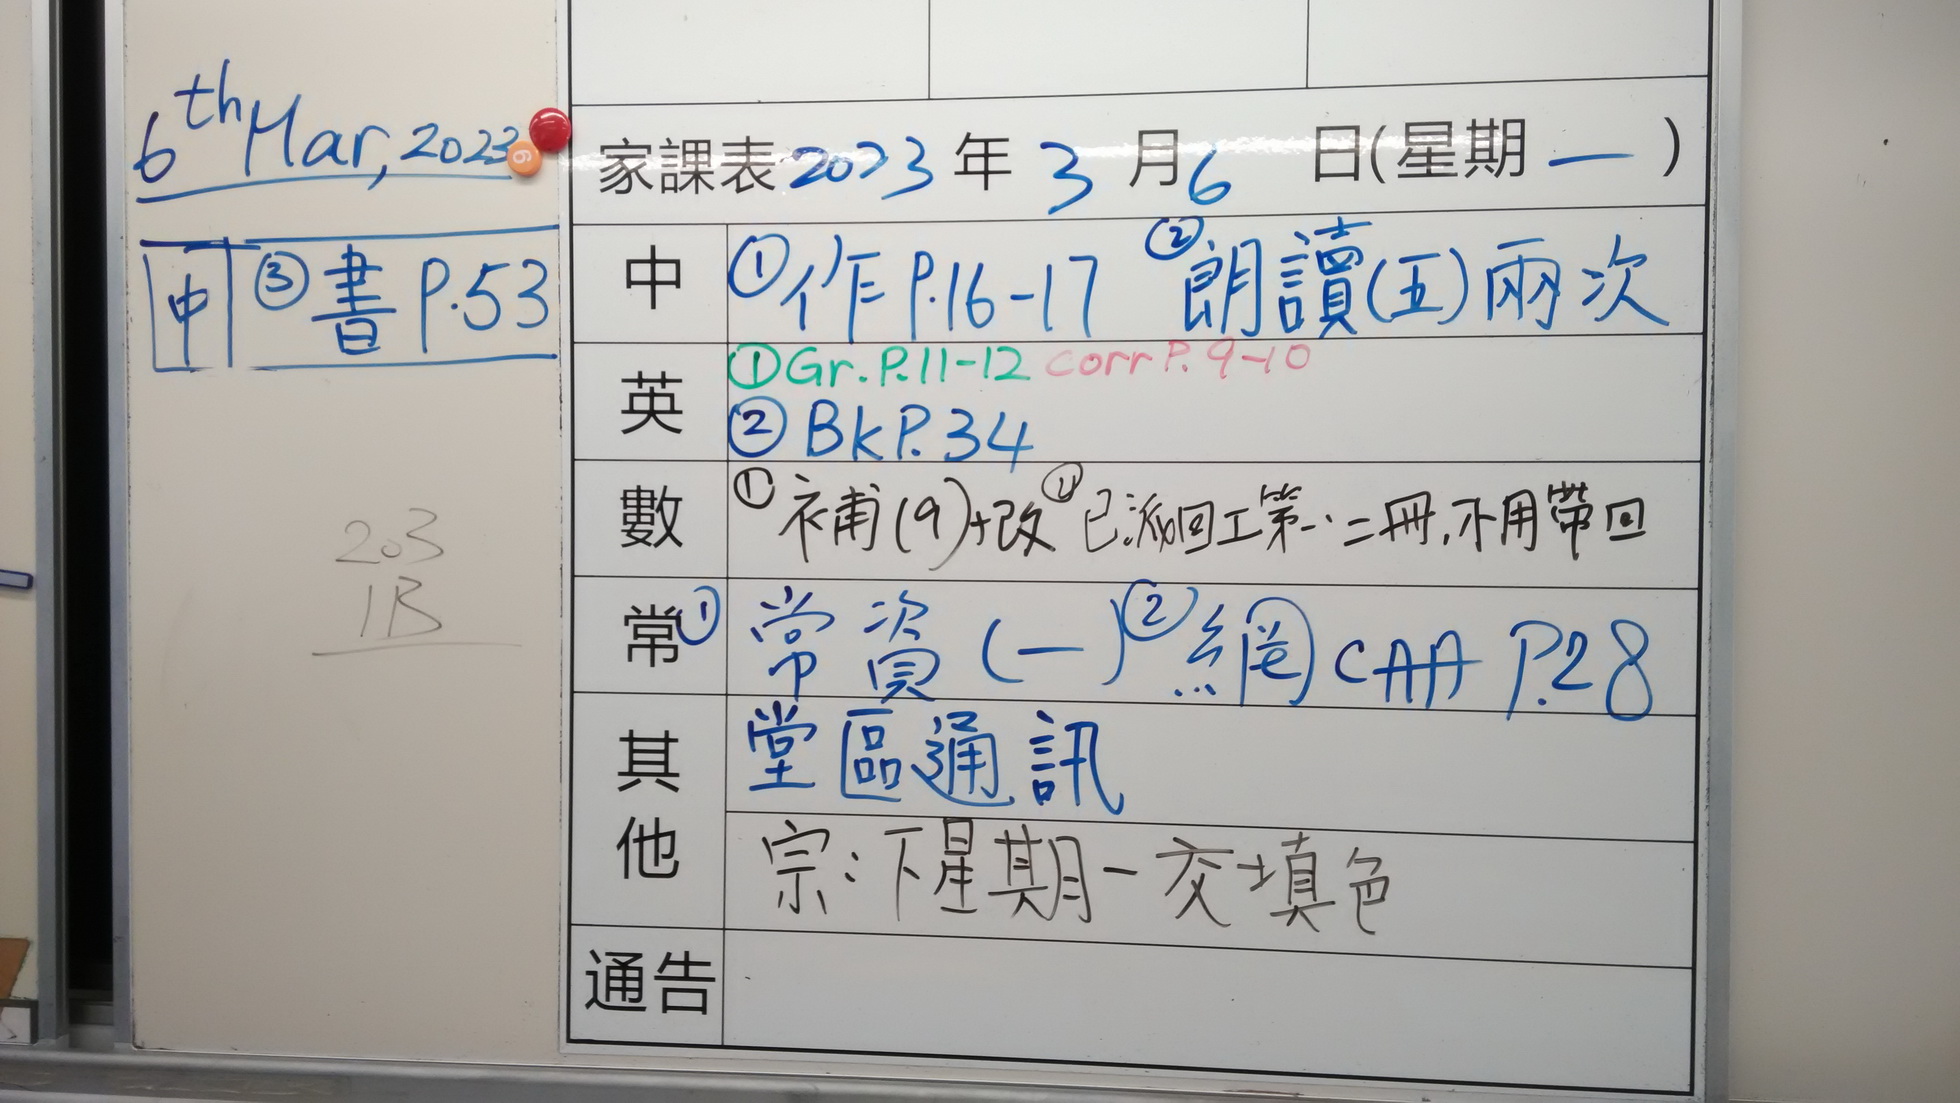 6th Mar, 2023
6
中 ③書 P.53
203
1B
家課表2023年3月6日(星期一)
中 ①作 P.16-17 ②朗讀(五)兩次
英 ①Gr.P.11-12 corr P.9-10
②BkP.34
數 ①補(9)+改 ②已派回工第一、二冊,不用帶回
常 ①常資(一) ②網 CAA P.28
其他 堂區通訊
宗:下星期一交填色
通告